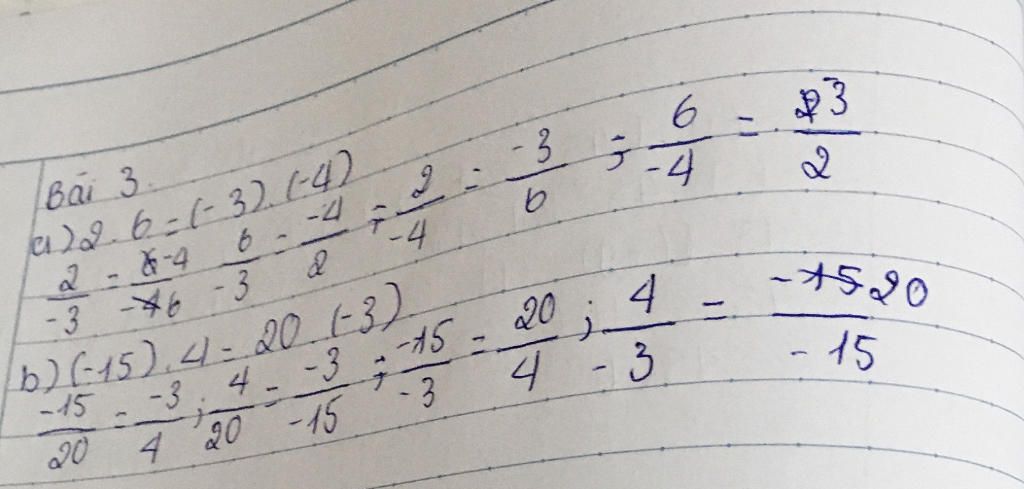 Bài 3.
a) 2.6 = (-3).(-4)
2/-3 = -4/6 6/-3 = -4/2 ; 2/-4 = -3/6 ; 6/-4 = 3/2
b) (-15).4 = 20.(-3)
-15/20 = -3/4 ; 4/20 = -3/-15 ; -15/-3 = 20/4 ; 4/-3 = 20/-15